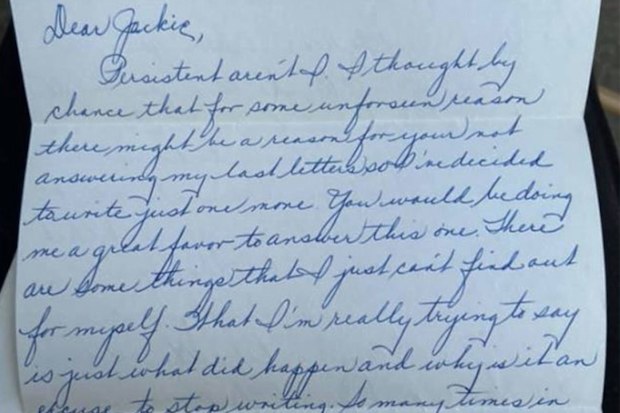 Dear Jackie,
Persistent aren't I. I thought by
chance that for some unforseen reason
there might be a reason for your not
answering my last letters so I've decided
to write just one more. You would be doing
me a great favor to answer this one. There
are some things that I just can't find out
for myself. What I'm really trying to say
is just what did happen and why is it an
excuse to stop writing. So many times in